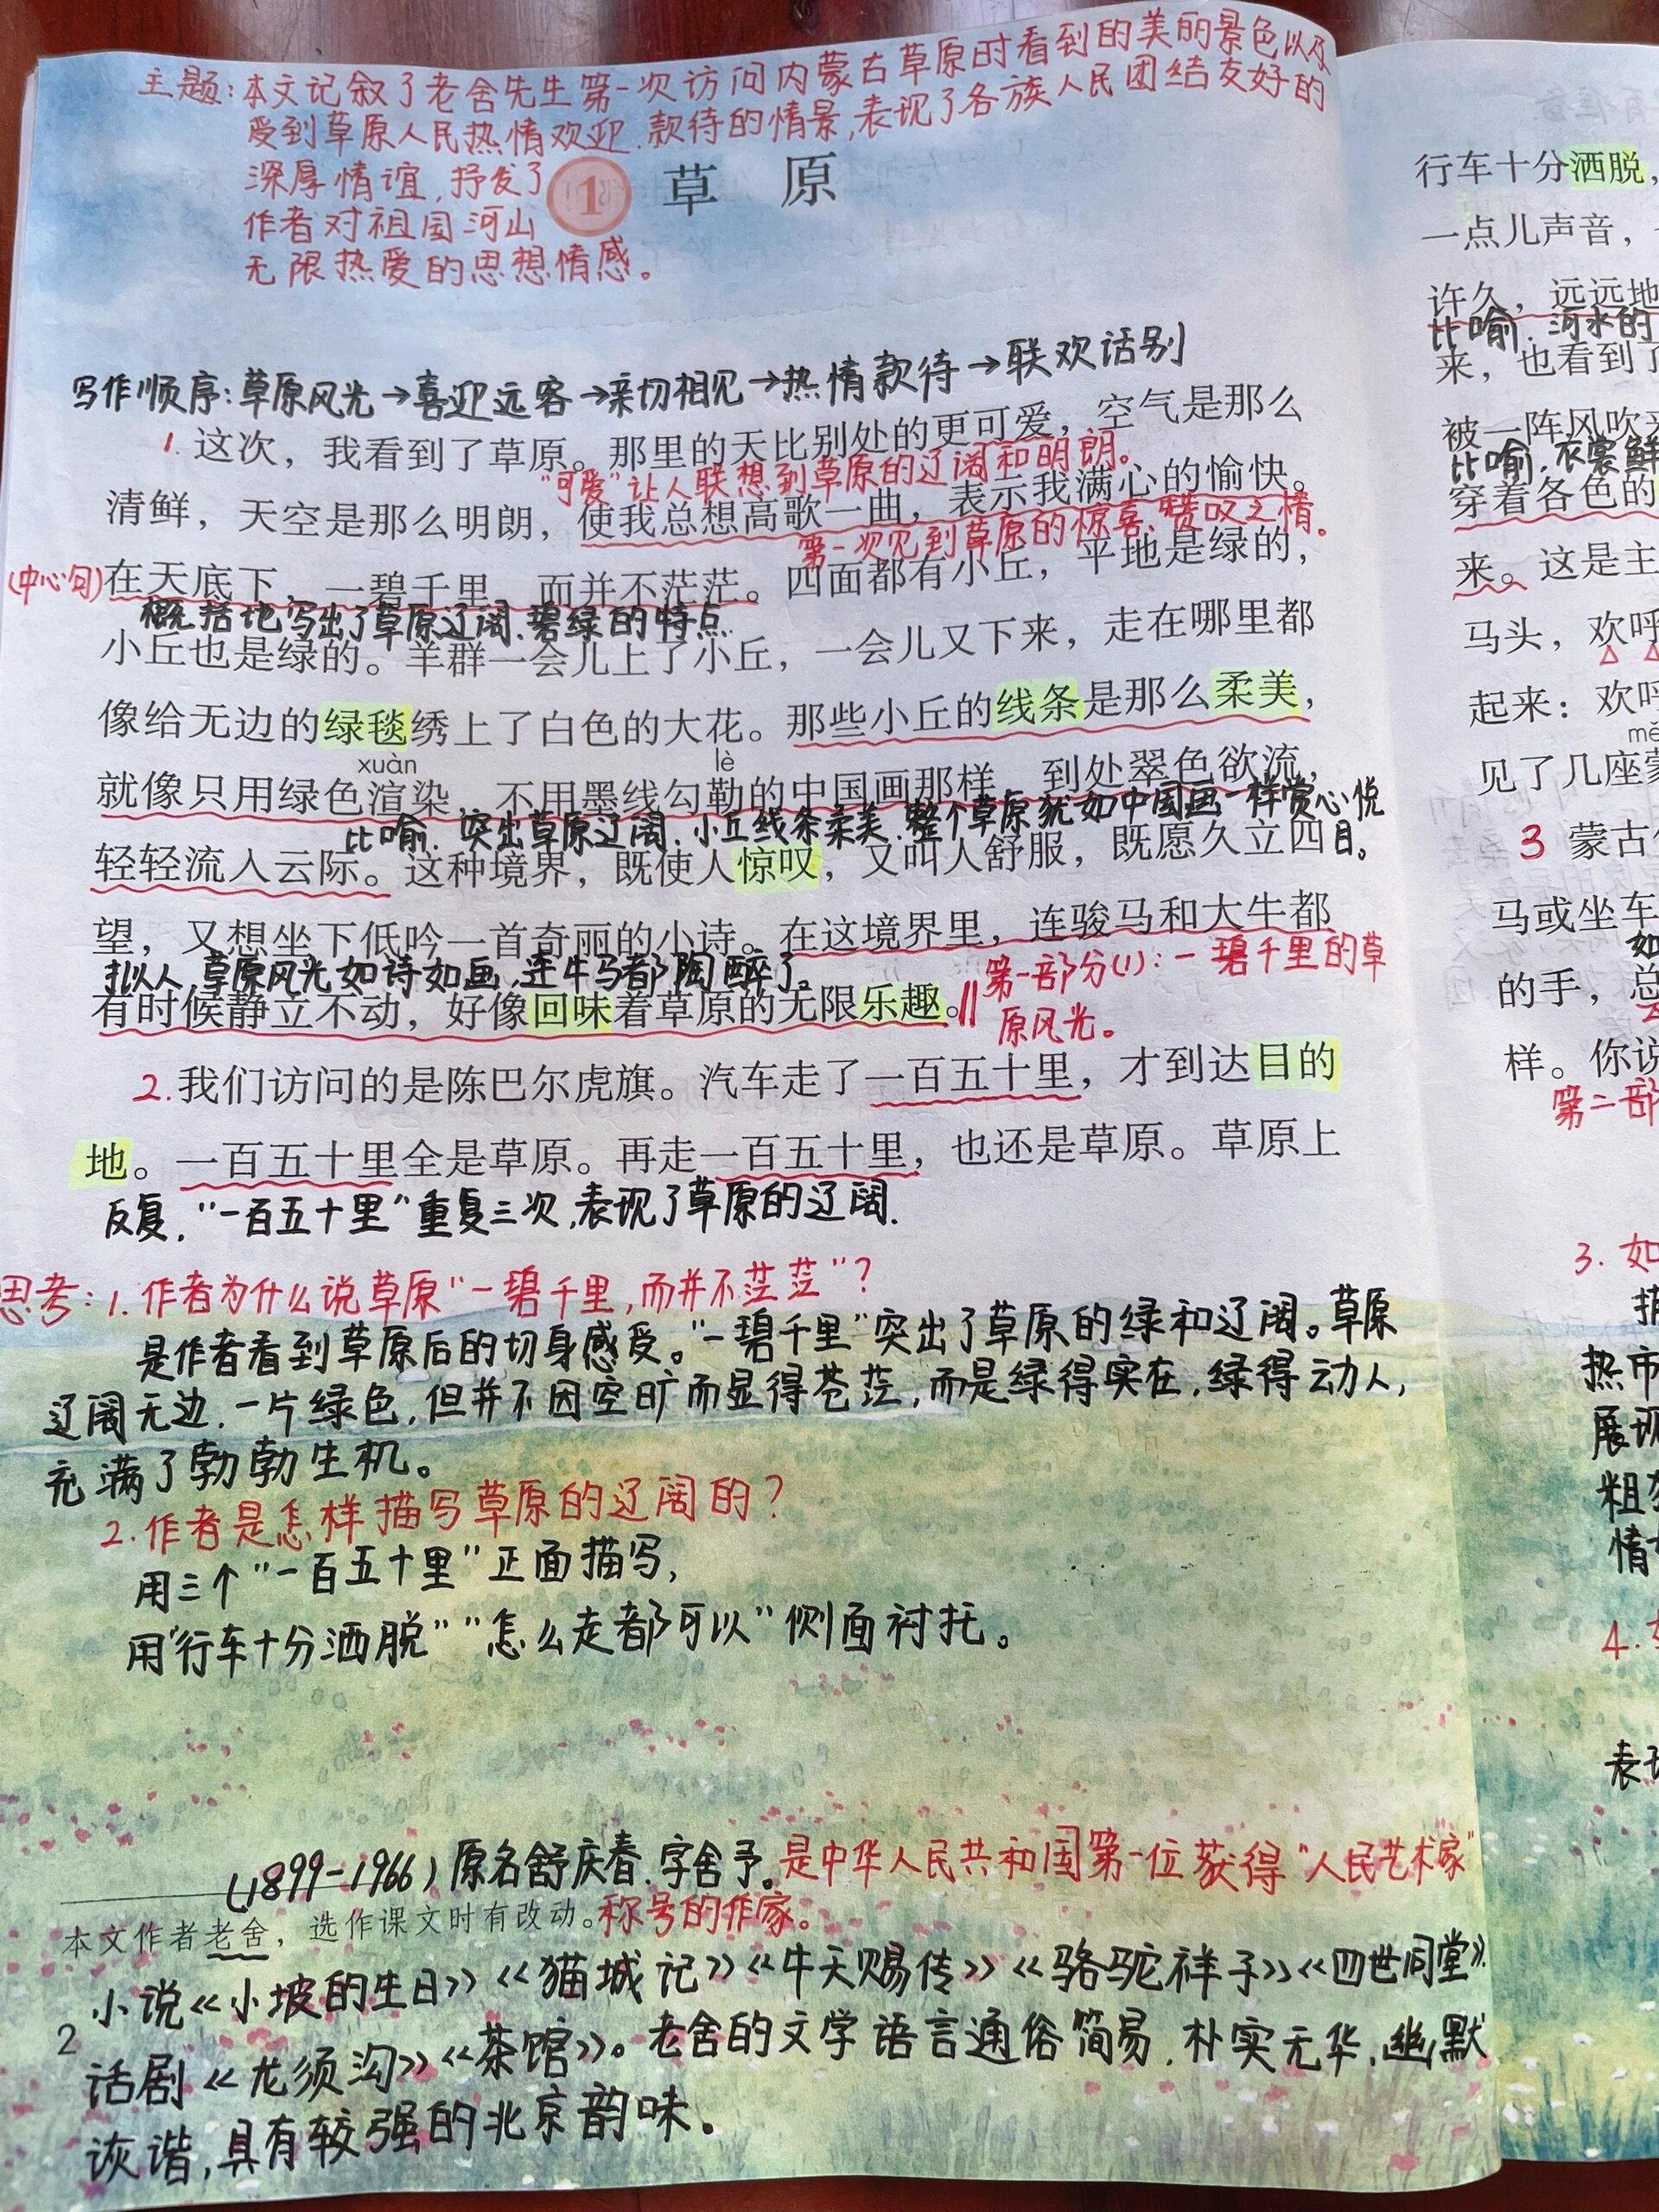 主题:本文记叙了老舍先生第一次访问内蒙古草原时看到的美丽景色以及
受到草原人民热情欢迎、款待的情景,表现了各族人民团结友好的
深厚情谊,抒发了
作者对祖国河山
无限热爱的思想情感。
1 草 原
写作顺序:草原风光→喜迎远客→亲切相见→热情款待→联欢话别
1. 这次，我看到了草原。那里的天比别处的更可爱，空气是那么
"可爱"让人联想到草原的辽阔和明朗。
清鲜，天空是那么明朗，使我总想高歌一曲，表示我满心的愉快。
第一次见到草原的惊喜、赞叹之情。
(中心句)在天底下，一碧千里，而并不茫茫。四面都有小丘，平地是绿的，
概括地写出了草原辽阔、碧绿的特点
小丘也是绿的。羊群一会儿上了小丘，一会儿又下来，走在哪里都
像给无边的绿毯绣上了白色的大花。那些小丘的线条是那么柔美，
xuàn lè
就像只用绿色渲染，不用墨线勾勒的中国画那样，到处翠色欲流，
比喻. 突出草原辽阔、小丘线条柔美、整个草原犹如中国画一样赏心悦
目。
轻轻流入云际。这种境界，既使人惊叹，又叫人舒服，既愿久立四
望，又想坐下低吟一首奇丽的小诗。在这境界里，连骏马和大牛都
拟人 草原风光如诗如画,连牛马都陶醉了。
有时候静立不动，好像回味着草原的无限乐趣。‖
第一部分(1):一碧千里的草
原风光。
2. 我们访问的是陈巴尔虎旗。汽车走了一百五十里，才到达目的
地。一百五十里全是草原。再走一百五十里，也还是草原。草原上
反复,"一百五十里"重复三次,表现了草原的辽阔.
思考:1.作者为什么说草原"一碧千里,而并不茫茫"?
是作者看到草原后的切身感受。"一碧千里"突出了草原的绿和辽阔。草原
辽阔无边,一片绿色,但并不因空旷而显得苍茫,而是绿得实在,绿得动人,
充满了勃勃生机。
2.作者是怎样描写草原的辽阔的?
用三个"一百五十里"正面描写,
用"行车十分洒脱""怎么走都可以"侧面衬托。
(1899-1966)原名舒庆春.字舍予。是中华人民共和国第一位获得"人民艺术家"
称号的作家。
本文作者老舍，选作课文时有改动。
小说《小坡的生日》《猫城记》《牛天赐传》《骆驼祥子》《四世同堂》.
话剧《龙须沟》《茶馆》。老舍的文学语言通俗简易,朴实无华,幽默
诙谐,具有较强的北京韵味。
2
行车十分洒脱，
一点儿声音，
许久，远远地
比喻.河水的
来，也看到了
被一阵风吹来
比喻.衣裳鲜
穿着各色的
来。这是主
马头，欢呼
起来：欢呼
见了几座蒙
3 蒙古
马或坐车
如
的手，总
样。你说
第二部
3. 如
热
展现
粗
情
4.
表现